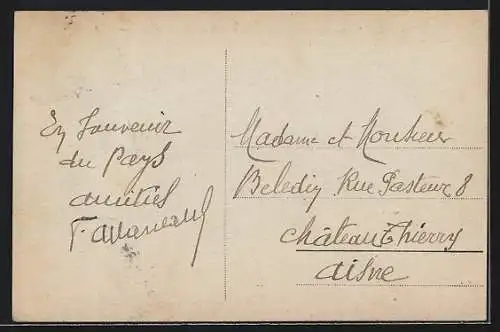 En Souvenir
du Pays
amitiés
Madame et Monsieur
Beledin Rue Pasteur 8
Château Thierry
Aisne